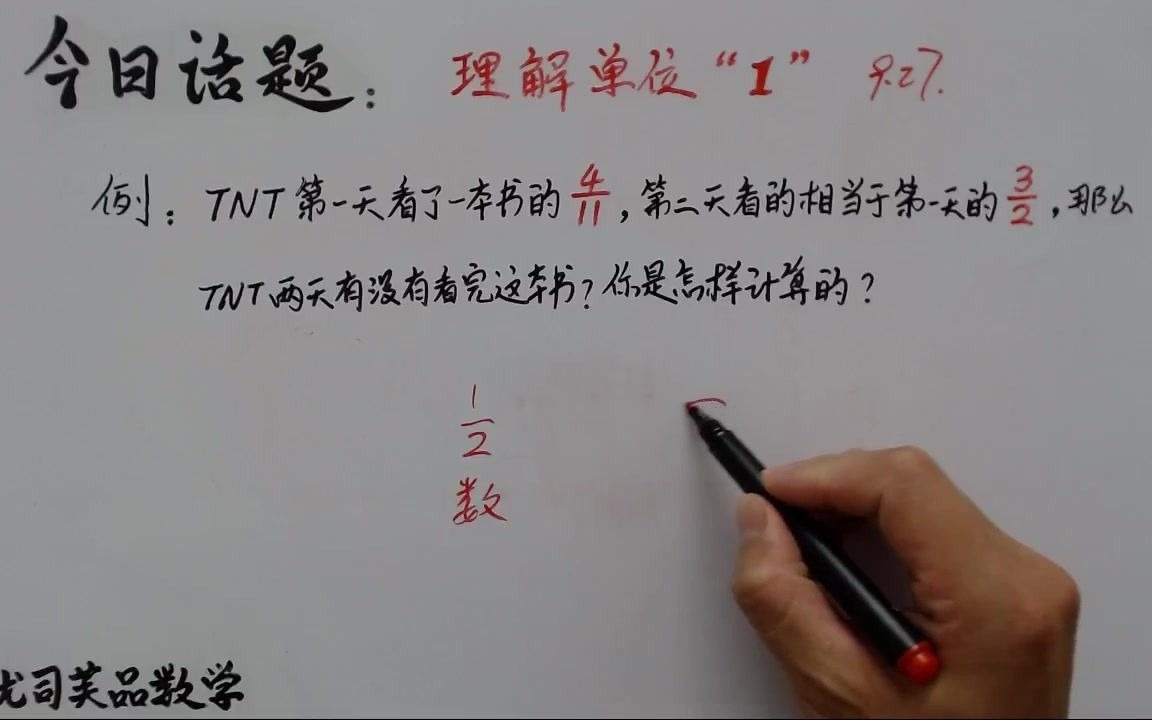 今日话题： 理解单位“1” 9.27.
例：TNT第一天看了一本书的4/11，第二天看的相当于第一天的3/2，那么
TNT两天有没有看完这本书？你是怎样计算的？
1/2
数
司芙品数学